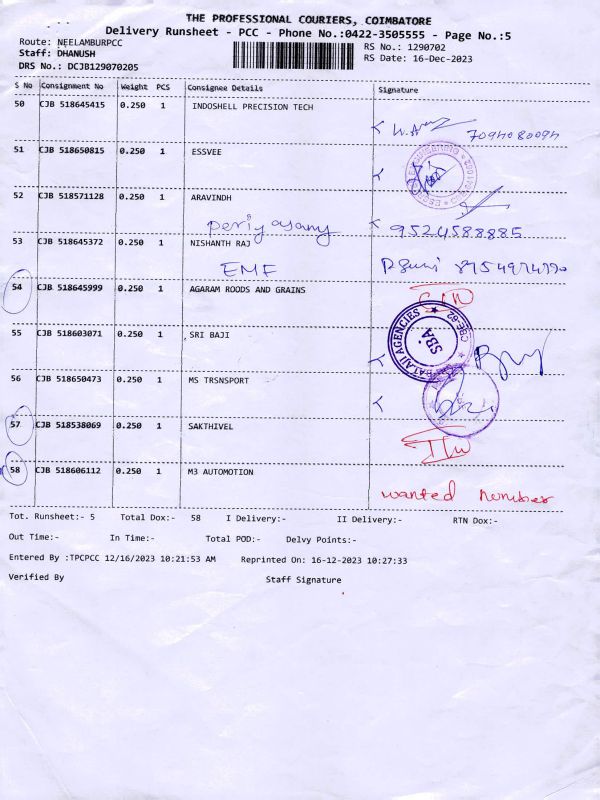 THE PROFESSIONAL COURIERS, COIMBATORE
Delivery Runsheet - PCC - Phone No.:0422-3505555 - Page No.:5
Route: NEELAMBURPCC
RS No.: 1290702
Staff: DHANUSH
RS Date: 16-Dec-2023
DRS No.: DCJB129070205
S No Consignment No Weight PCS Consignee Details Signature
50 CJB 518645415 0.250 1 INDOSHELL PRECISION TECH
7094080094
51 CJB 518650815 0.250 1 ESSVEE
52 CJB 518571128 0.250 1 ARAVINDH
periyasamy 9524588885
53 CJB 518645372 0.250 1 NISHANTH RAJ
EMF
54 CJB 518645999 0.250 1 AGARAM ROODS AND GRAINS
BALAJI AGENCIES CBE-62
SBA
55 CJB 518603071 0.250 1 SRI BAJI
56 CJB 518650473 0.250 1 MS TRSNSPORT
57 CJB 518538069 0.250 1 SAKTHIVEL
58 CJB 518606112 0.250 1 M3 AUTOMOTION
wanted number
Tot. Runsheet:- 5 Total Dox:- 58 I Delivery:- II Delivery:- RTN Dox:-
Out Time:- In Time:- Total POD:- Delvy Points:-
Entered By :TPCPCC 12/16/2023 10:21:53 AM Reprinted On: 16-12-2023 10:27:33
Verified By Staff Signature